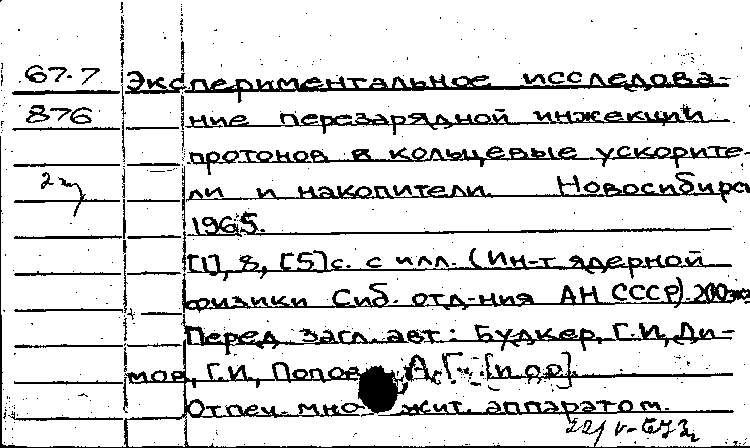 67-7 Экспериментальное исследова-
876 ние перезарядной инжекции
протонов в кольцевые ускорите-
2 ли и накопители. Новосибирс
1965.
[1], 8, [5] с. с илл. (Ин-т ядерной
физики Сиб. отд-ния АН СССР). 200 экз
Перед загл. авт.: Будкер, Г.И., Ди-
мов, Г.И., Попов, А.Г. [и др].
Отпеч. множит. аппаратом.